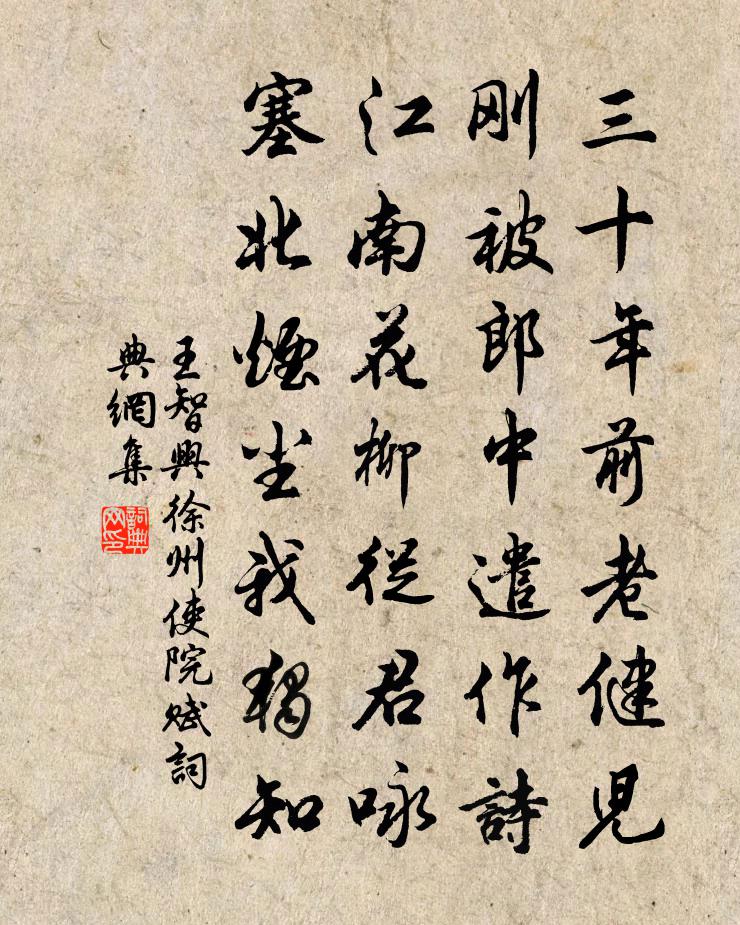 三十年前老健児
刚被郎中遣作詩
江南花柳從君咏
塞北煙尘我獨知
王智興徐州使院賦詞
典網集
詞典网印